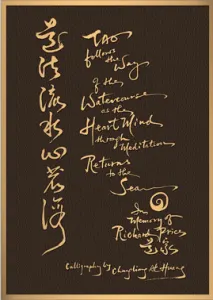 道法流水心
TAO
follows the
Way
of the
Watercourse
as the
Heart Mind
through
Meditation
Returns
to the
Sea
In
Memory of
Richard Price
Calligraphy by Chungliang Al Huang